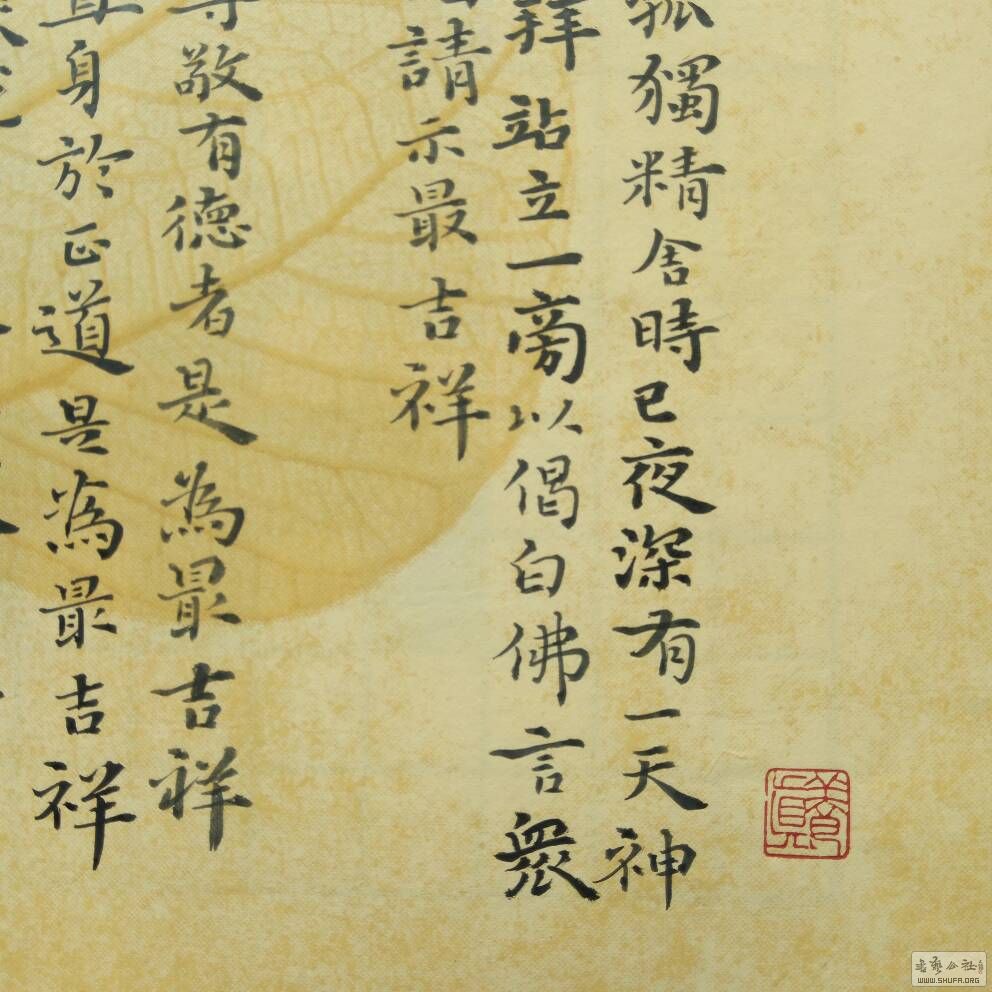 孤獨精舍時已夜深有一天神
拜站立一旁以偈白佛言衆
請示最吉祥
敬有德者是為最吉祥
身於正道是為最吉祥
WWW.SHUFA.ORG